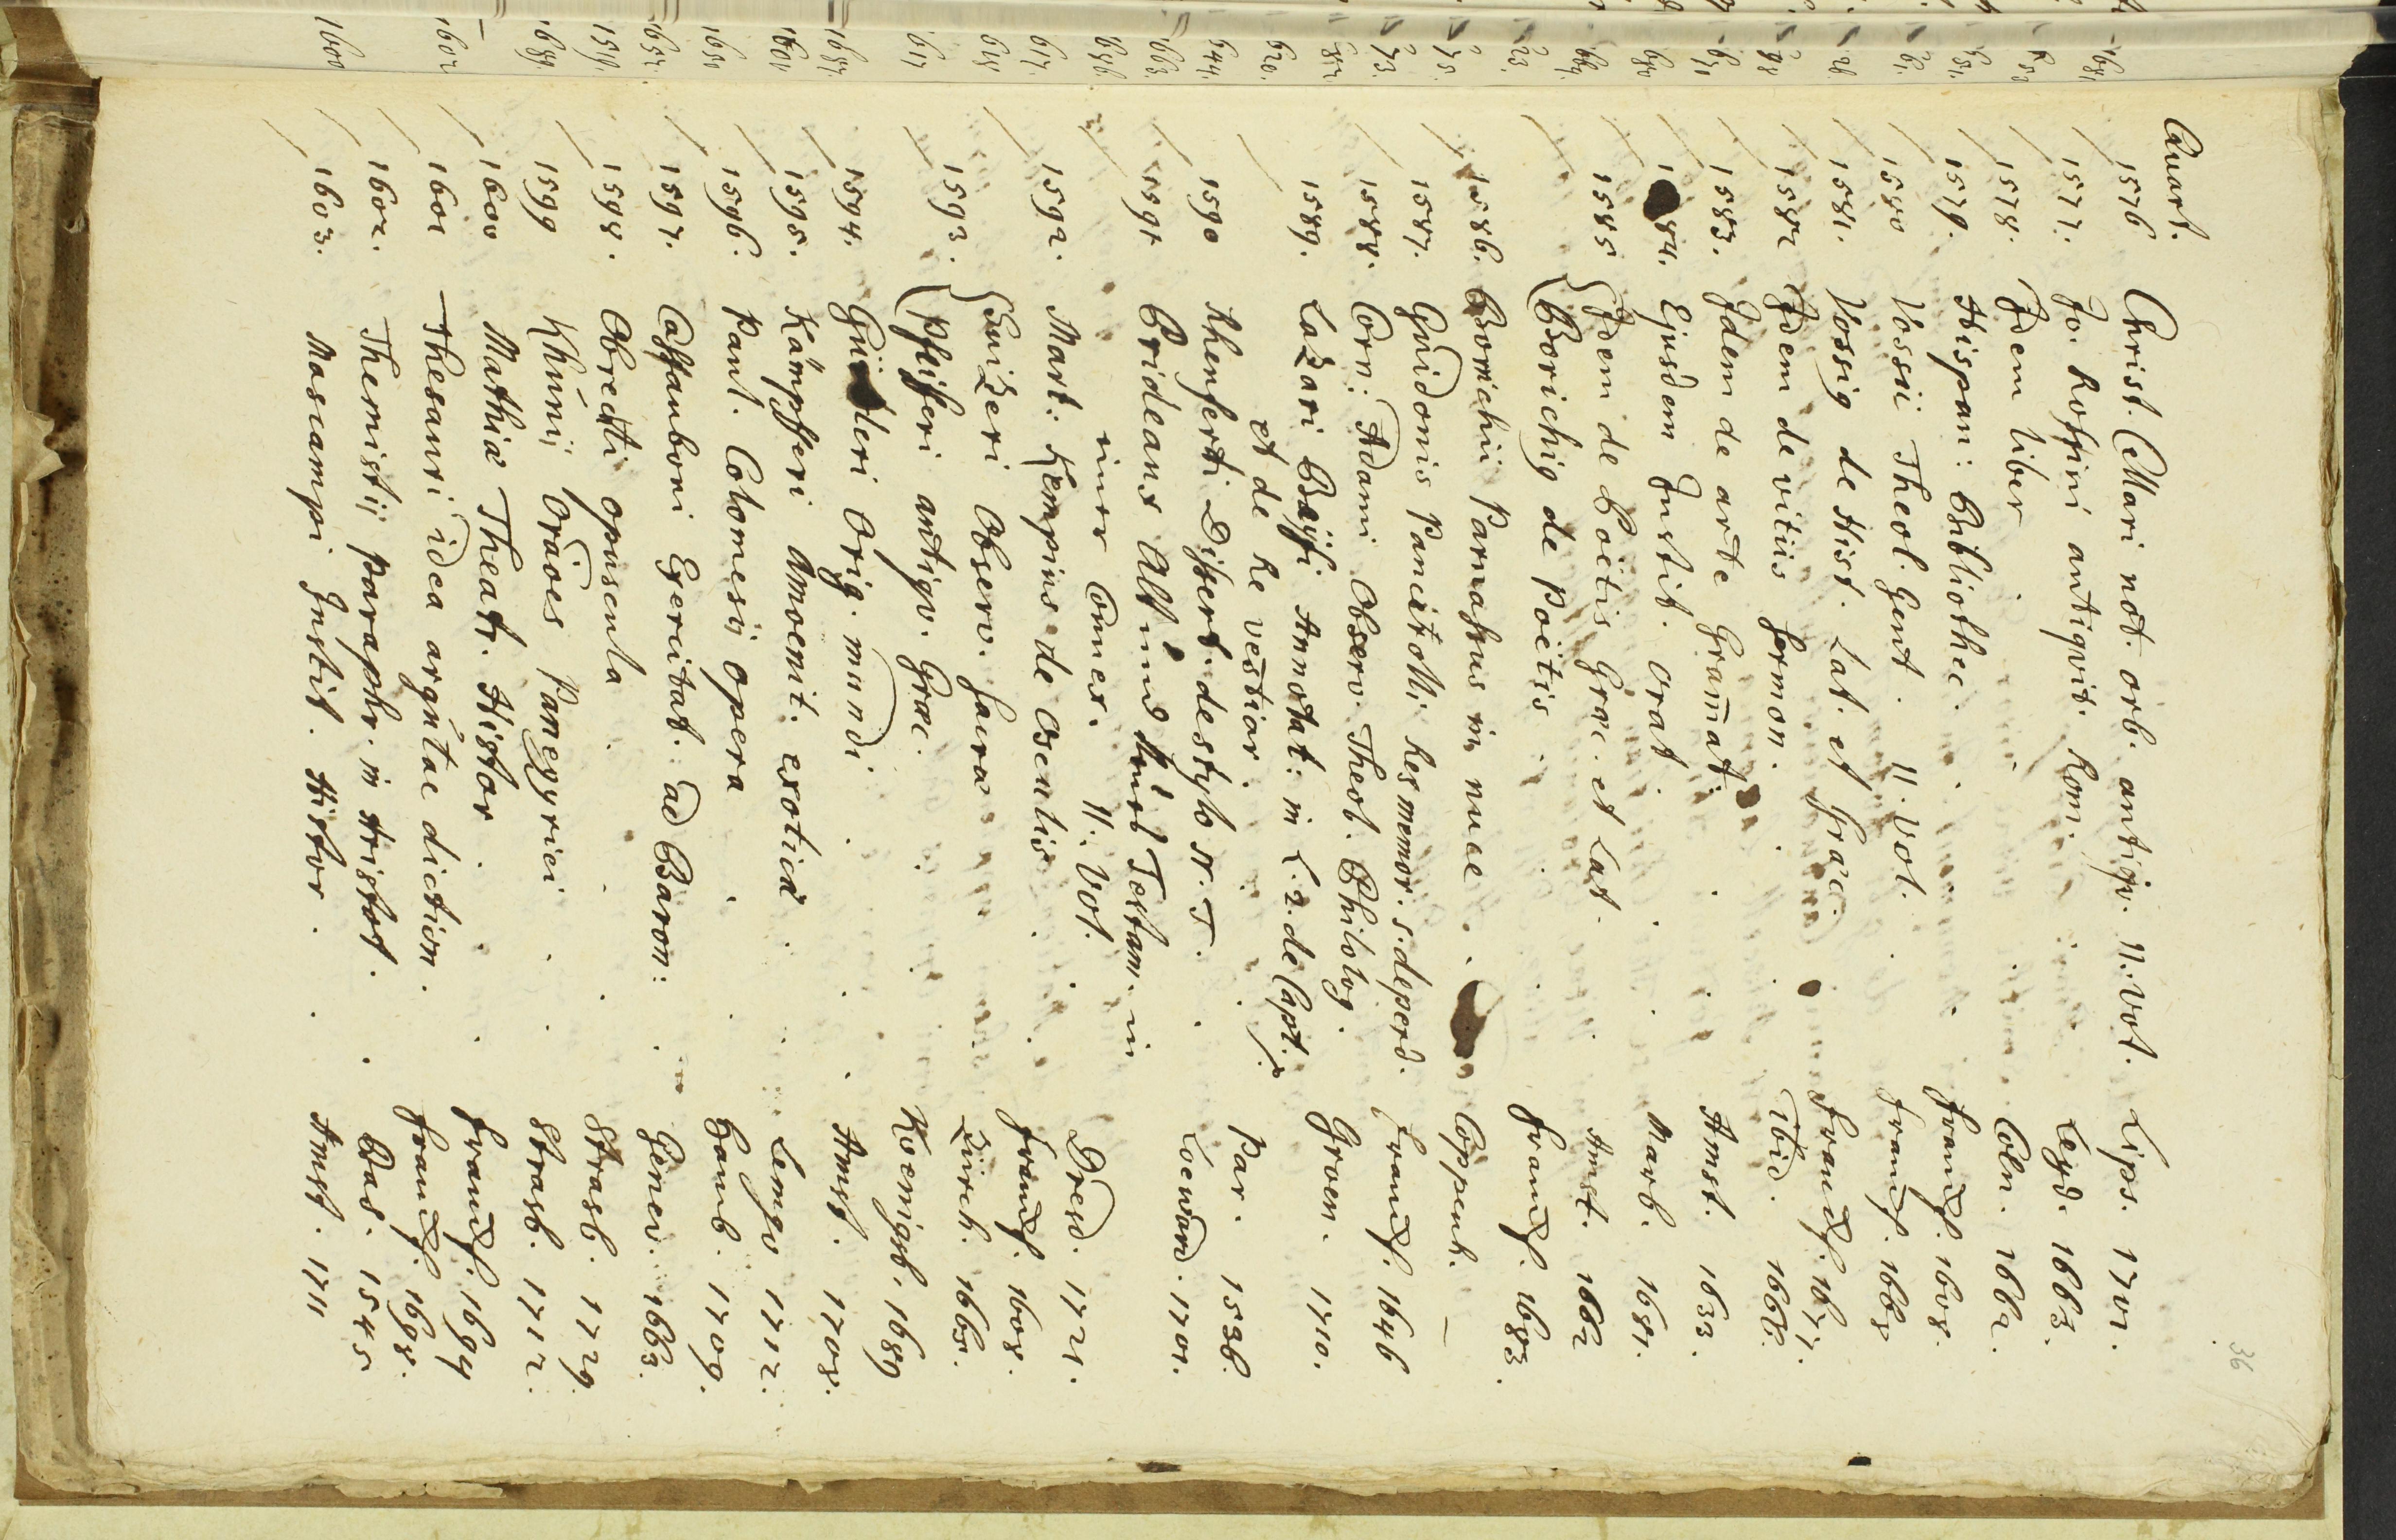 36
Quart.
1576 Christ. Cellari not. orb. antiqv. II. Vol. Lips. 1701.
1577. Jo. Rosini antiqvit. Rom. Leyd. 1663.
1578. Idem liber Cöln. 1662.
1579. Hispan: Bibliothec. Franckf. 1608.
1580 Vossii Theol. Gent. II. Vol. Franckf. 1668
1581. Vossig de Hist. Lat. et Græc. Franckf. 1677.
1582 Idem de vitiis sermon. ibid. 1666.
1583. Idem de arte Grammat: Amst. 1633.
1584. Ejusdem Instit. orat Marb. 1681.
1585 Idem de Poëtis Græc. et Lat. Amst. 1662
Borichig de Poëtis Franckf. 1683.
1586. Borrichii Parnassus in nuce Coppenh. —
1587. Guidonis Pancirolli Res memor. s. deperd. Franckf. 1646
1588. Corn: Adami Observ. Theol. Philolog. Groen. 1710.
1589. Lazari Bayfi Annotat: in L. 2. de Capt.
et de Re vestiar. Par. 1536.
1590 Rhenferti Dissert. de stylo N. T. Loeward. 1701.
1591 Prideaux Alt und Neues Testam. in
einer Connex. II. Vol. Dresd. 1721.
1592. Mart: Kempius de Osculis Franckf. 1608.
1593. Suizeri Observ. sacræ Zürch. 1665.
Pfeiferi antiqv. Græc. Koenigsb. 1689
1594. Güderi Orig. mundi Amst. 1708.
1595. Kämpfferi Amoenit. exoticæ Lemgo 1712.
1596. Paul. Colomesii opera Hamb. 1709.
1597. Cassauboni Exercitat. ad Baron: Genev. 1663.
1598. Obrechti opuscula Strasb. 1729.
1599 Khünij Orãoes Panegyrici Strasb. 1712.
1600 Mathiæ Theatr. Histor Franckf. 1694
1601 Thesauri idea argutae diction. Franckf. 1698.
1602. Themistij paraphr. in Aristot. Bas. 1545.
1603. Mascampi Instit. Histor. Amst. 1711